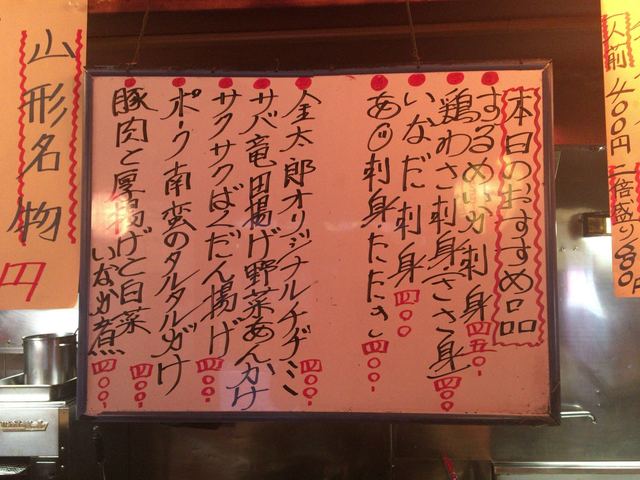 本日のおすすめ品
するめいか刺身 四五〇.
鶏わさ刺身(ささ身) 四〇〇.
いなだ刺身 四〇〇
あじ刺身たたき 四〇〇.
金太郎オリジナルチヂミ 四〇〇.
サバ竜田揚げ野菜あんかけ
サクサクばくだん揚げ 四〇〇.
ポーク南蛮のタルタルがけ 四〇〇.
豚肉と厚揚げと白菜
いなか煮 四〇〇.
山形名物
円
人前 400円
二倍盛り 800円